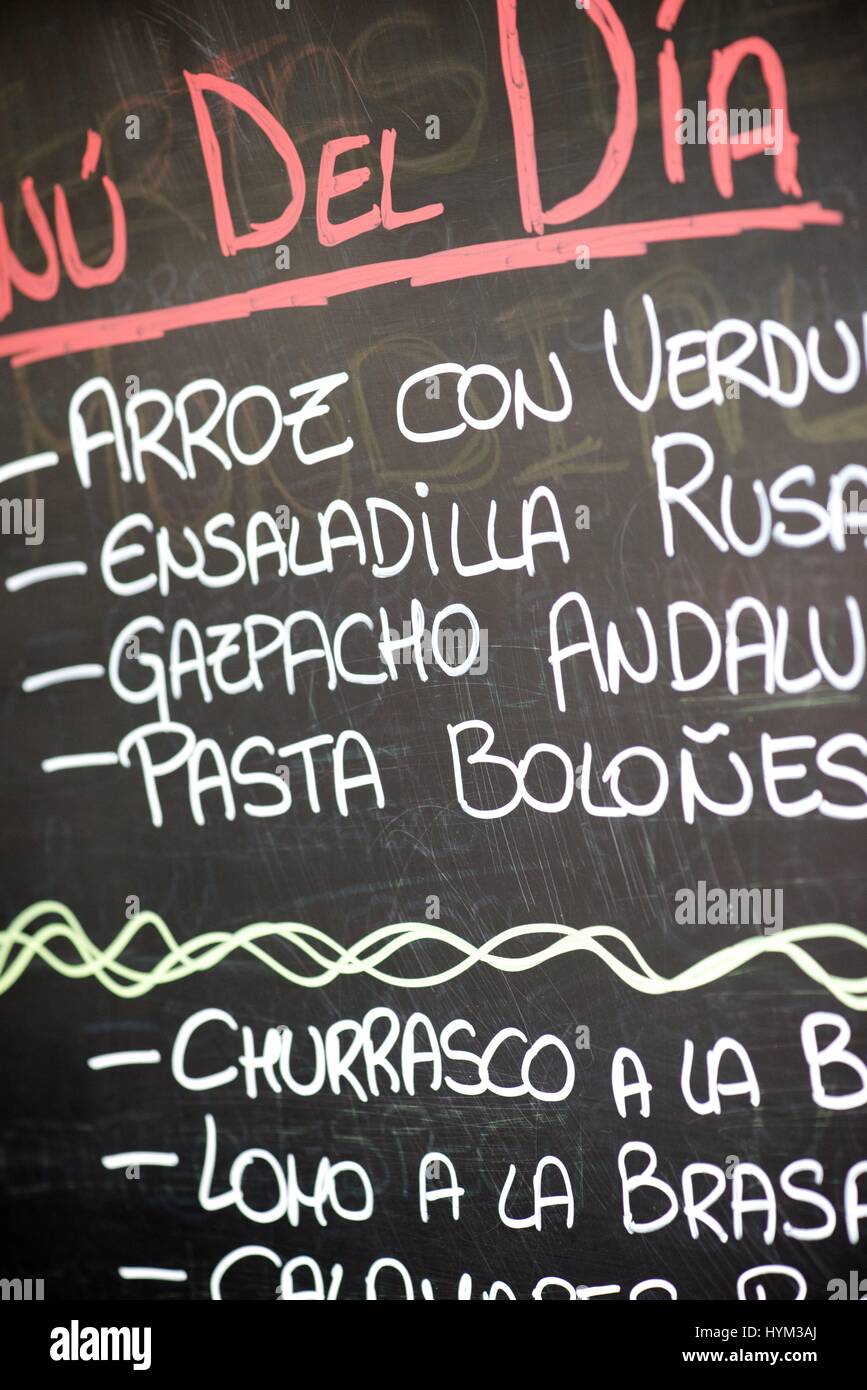 NÚ DEL DÍA
- ARROZ CON VERDU
- ENSALADILLA RUSA
- GAZPACHO ANDALU
- PASTA BOLOÑES
- CHURRASCO A LA B
- LOMO A LA BRASA
- CALAMARES
alamy
Image ID: HYM3AJ
www.alamy.com